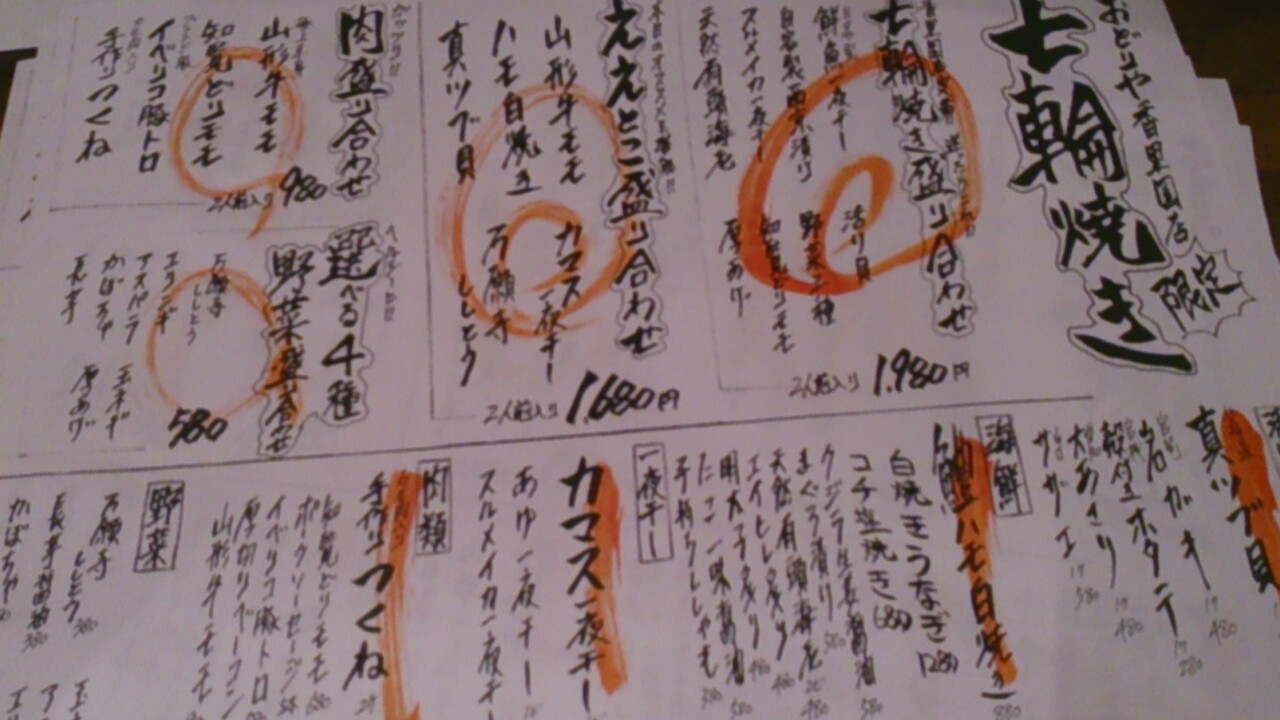 おどりや香里園店
限定
七輪焼き
七輪焼き盛り合わせ
鮮魚一夜干し
スルメイカ一夜干し
天然有頭海老
活〆貝
野菜二種
知覧どりモモ
厚あげ
2人前入り 1,980円
ええとこ盛り合わせ
山形牛モモ
ハモ白焼き
真ツブ貝
カマス一夜干し
万願寺ししとう
2人前入り 1,680円
ガッツリ!!
肉盛り合わせ
山形牛モモ
知覧どりモモ
イベリコ豚トロ
手作りつくね
2人前入り 980
ヘルシー!!
選べる4種
野菜盛合せ
万願寺ししとう
エリンギ
アスパラ
かぼちゃ
長芋
玉ネギ
厚あげ
580
真ツブ貝
岩ガキ 1ケ 480
殻付きホタテ 1ケ 280
大あさり 1ケ 480
サザエ 1ケ 580
海鮮
ハモ白焼き 880
白焼きうなぎ 1280
コチ塩焼き 680
クジラ生姜醤油 580
まぐろ漬け 580
天然有頭海老
エイヒレ炙り 480
子持ちししゃも
一夜干し
カマス一夜干し
あゆ一夜干し
スルメイカ一夜干し
肉類
手作りつくね
知覧どりモモ 680
ポークソーセージ
イベリコ豚トロ
厚切りベーコン
山形牛モモ
野菜
万願寺ししとう 380
長芋 380
かぼちゃ